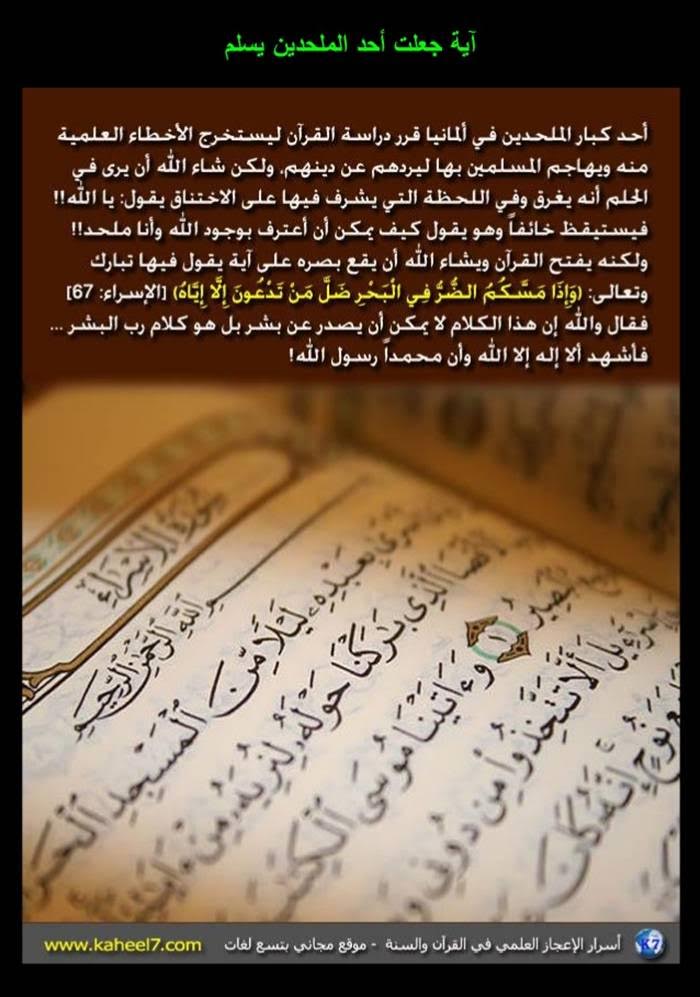 آية جعلت أحد الملحدين يسلم
أحد كبار الملحدين في ألمانيا قرر دراسة القرآن ليستخرج الأخطاء العلمية
منه ويهاجم المسلمين بها ليردهم عن دينهم، ولكن شاء الله أن يرى في
الحلم أنه يغرق وفي اللحظة التي يشرف فيها على الاختناق يقول: يا الله!!
فيستيقظ خائفاً وهو يقول كيف يمكن أن أعترف بوجود الله وأنا ملحد!!
ولكنه يفتح القرآن ويشاء الله أن يقع بصره على آية يقول فيها تبارك
وتعالى: (وَإِذَا مَسَّكُمُ الضُّرُّ فِي الْبَحْرِ ضَلَّ مَنْ تَدْعُونَ إِلَّا إِيَّاهُ) [الإسراء: 67]
فقال والله إن هذا الكلام لا يمكن أن يصدر عن بشر بل هو كلام رب البشر ...
فأشهد ألا إله إلا الله وأن محمداً رسول الله!
سُورَةُ الإِسْرَاءِ
اللَّهِ الرَّحْمَٰنِ الرَّحِيمِ
بِعَبْدِهِ لَيْلًا مِّنَ الْمَسْجِدِ
الَّذِي بَارَكْنَا حَوْلَهُ لِنُرِيَهُ مِنْ
١ وَءَاتَيْنَا مُوسَى الْكِتَابَ
أَلَّا تَتَّخِذُوا مِن دُونِي
نُوحٍ إِنَّهُ كَانَ
K7 أسرار الإعجاز العلمي في القرآن والسنة - موقع مجاني بتسع لغات www.kaheel7.com